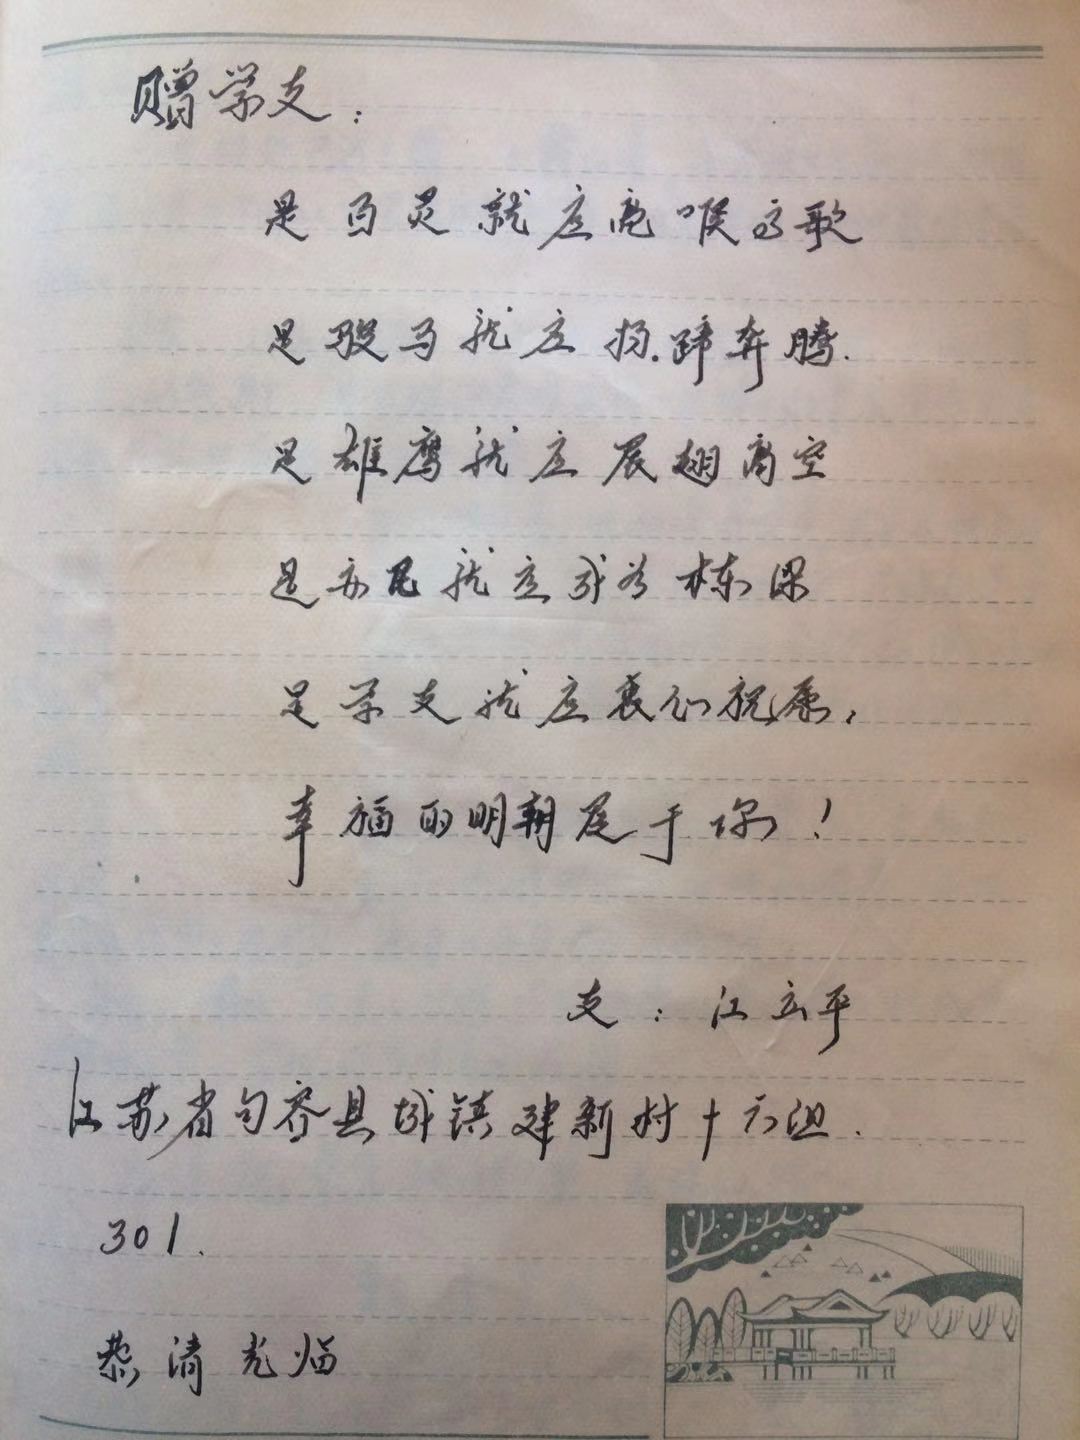 赠学友:
是百灵就应亮喉高歌
是骏马就应扬蹄奔腾.
是雄鹰就应展翅高空
是就应成为栋梁
是学友就应衷心祝愿,
幸福的明朝属于你!
友:江立平
江苏省句容县城镇建新村十六组.
301.
恭请光临